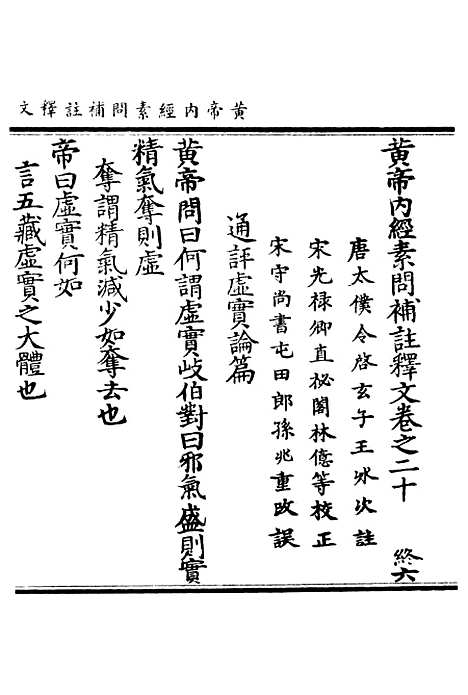 黃帝內經素問補註釋文
黃帝內經素問補註釋文卷之二十 終六
唐太僕令啓玄子王冰次註
宋光祿卿直祕閣林億等校正
宋守尚書屯田郎孫兆重改誤
通評虛實論篇
黃帝問曰何謂虛實歧伯對曰邪氣盛則實
精氣奪則虛
奪謂精氣減少如奪去也
帝曰虛實何如
言五藏虛實之大體也